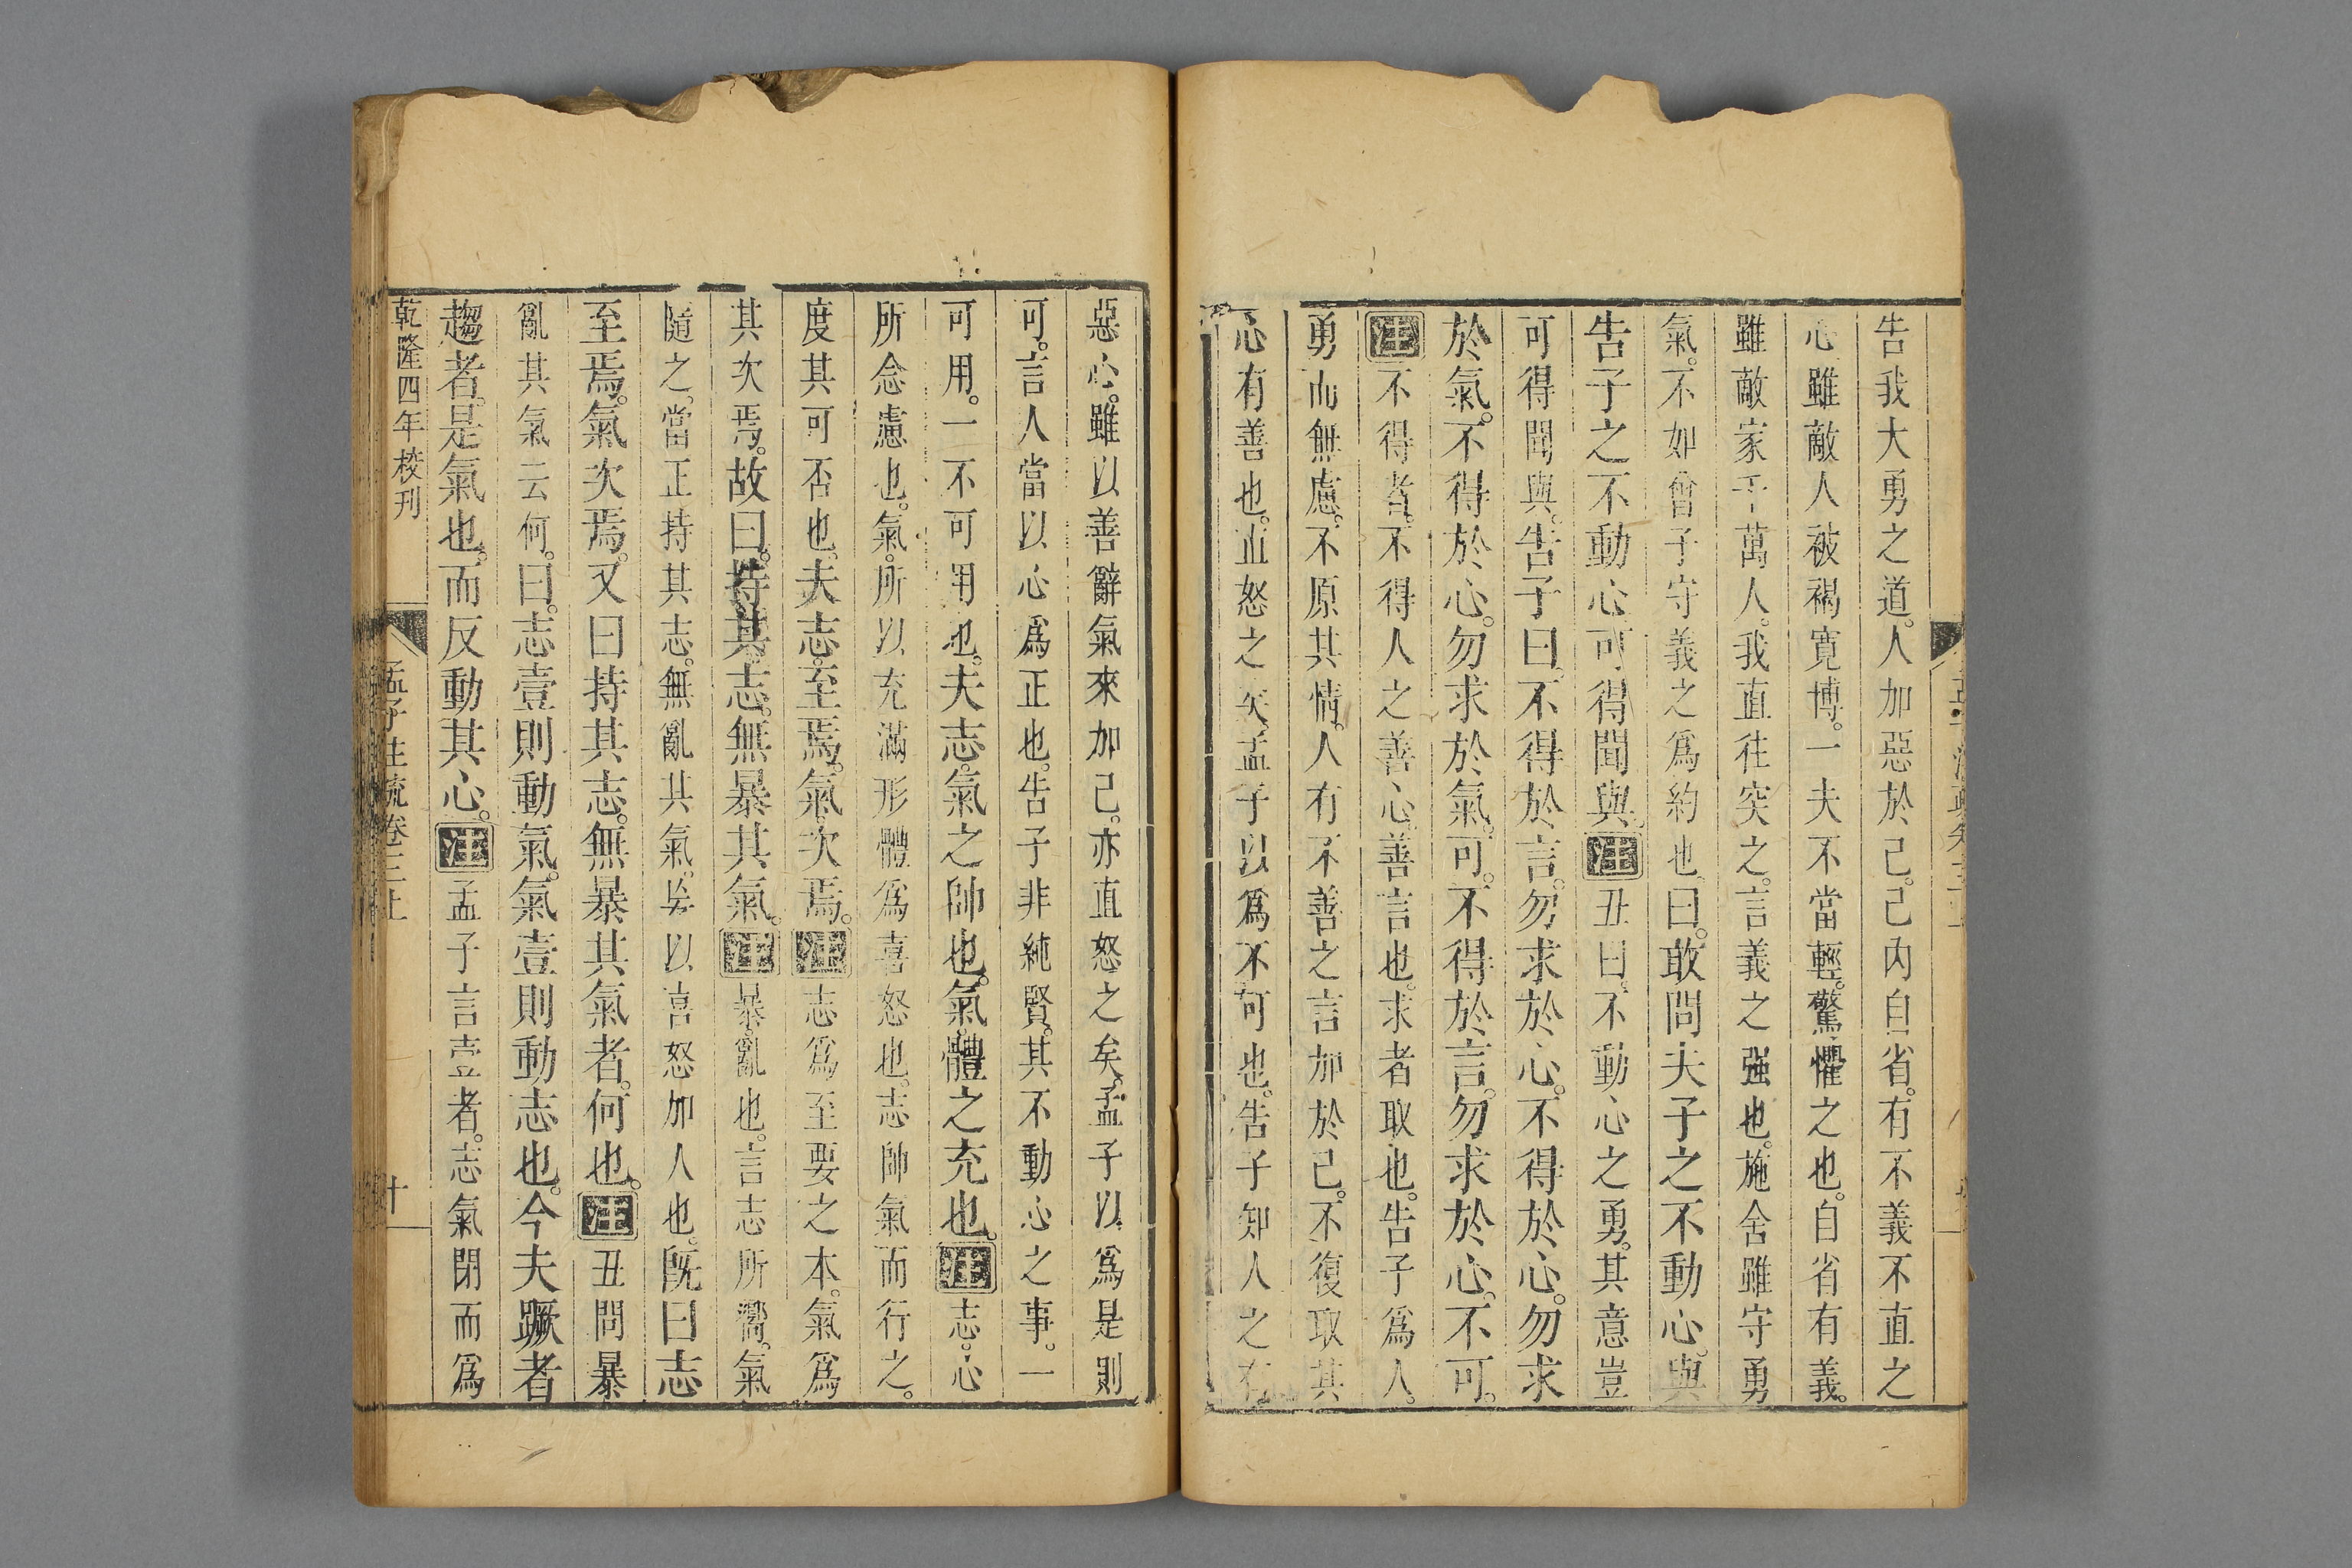 告我大勇之道。人加惡於己。己內自省。有不義不直之
心。雖敵人被褐寬博。一夫不當輕。驚懼之也。自省有義。
雖敵家千萬人。我直往突之。言義之强也。施舍雖守勇
氣。不如曾子守義之爲約也。曰。敢問夫子之不動心。與
告子之不動心。可得聞與。注丑曰。不動心之勇。其意豈
可得聞與。告子曰。不得於言。勿求於心。不得於心。勿求
於氣。不得於心。勿求於氣。可。不得於言。勿求於心。不可。
注不得者。不得人之善心善言也。求者取也。告子爲人。
勇而無慮。不原其情。人有不善之言加於己。不復取其
心有善也。直怒之矣。孟子以爲不可也。告子知人之有
惡心。雖以善辭氣來加己。亦直怒之矣。孟子以爲是則
可。言人當以心爲正也。告子非純賢。其不動心之事。一
可用。一不可用也。夫志。氣之帥也。氣。體之充也。注志。心
所念慮也。氣。所以充滿形體爲喜怒也。志帥氣而行之。
度其可否也。夫志。至焉。氣。次焉。注志爲至要之本。氣爲
其次焉。故曰。持其志。無暴其氣。注暴。亂也。言志所嚮。氣
隨之。當正持其志。無亂其氣。妄以喜怒加人也。旣曰志
至焉。氣次焉。又曰持其志。無暴其氣者。何也。注丑問暴
亂其氣云何。曰。志壹則動氣。氣壹則動志也。今夫蹶者
趨者。是氣也。而反動其心。注孟子言壹者。志氣閉而爲
乾隆四年校刊
孟子注疏卷三上
十